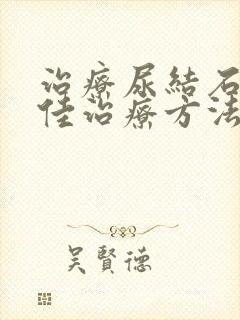 治療尿結石
佳治療方法
吳賢德